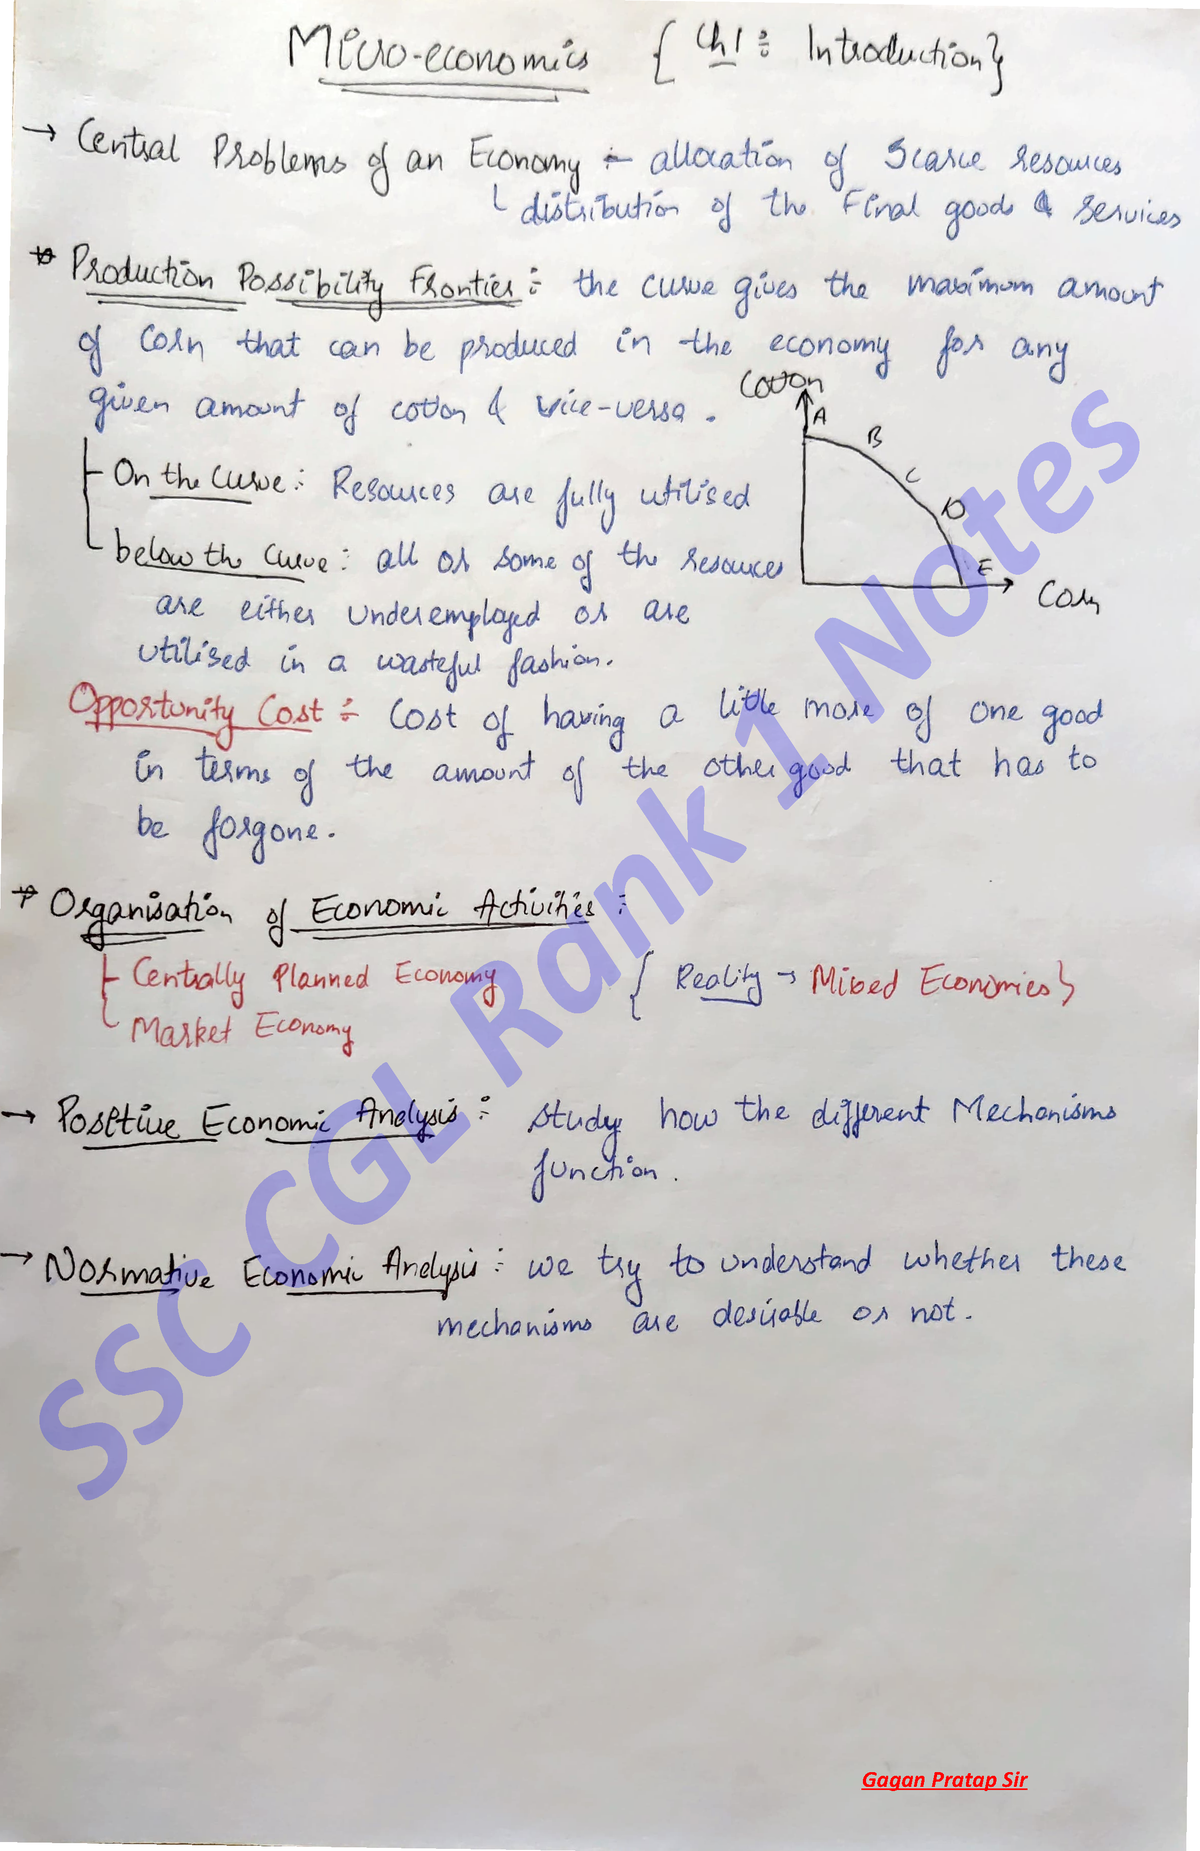 Micro-economics { Ch 1 : Introduction }
→ Central Problems of an Economy - allocation of Scarce resources
distribution of the Final goods & services
* Production Possibility Frontier : the curve gives the maximum amount
of Corn that can be produced in the economy for any
given amount of cotton & vice-versa .
Cotton
A
B
C
D
E
Corn
On the Curve : Resources are fully utilised
below the Curve : all or some of the resources
are either underemployed or are
utilised in a wasteful fashion.
Opportunity Cost : Cost of having a little more of one good
in terms of the amount of the other good that has to
be forgone.
* Organisation of Economic Activities :
Centrally Planned Economy { Reality → Mixed Economies }
Market Economy
→ Positive Economic Analysis : study how the different Mechanisms
function .
→ Normative Economic Analysis : we try to understand whether these
mechanisms are desirable or not .
SSC CGL Rank 1 Notes
Gagan Pratap Sir